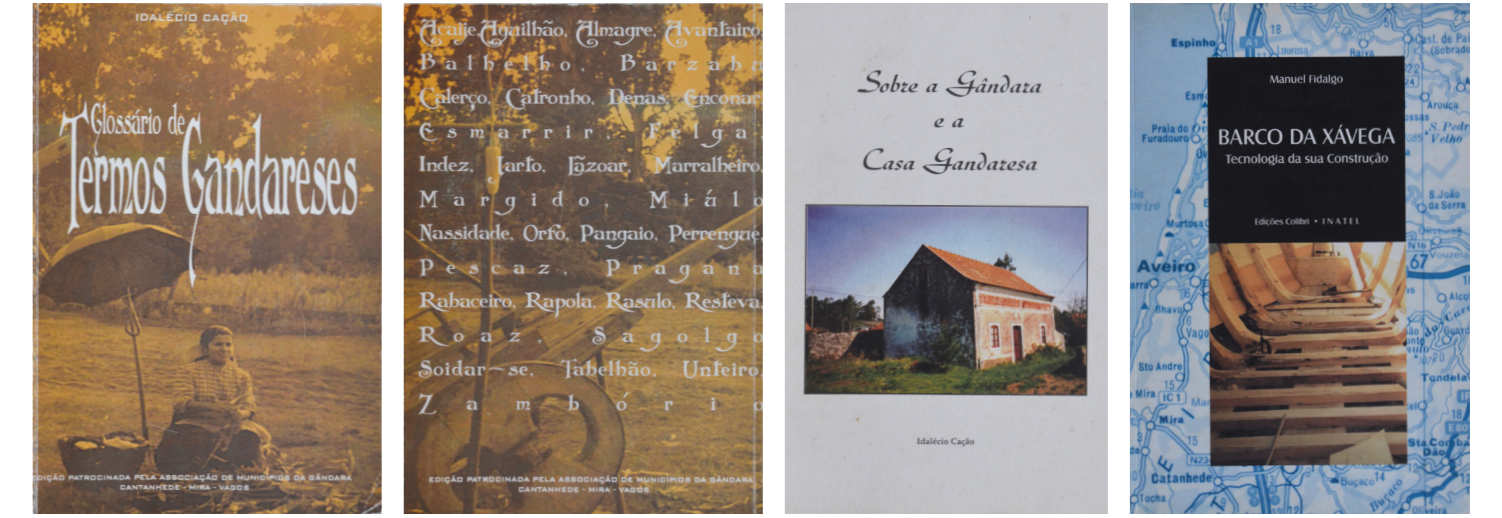 IDALÉCIO CAÇÃO
Glossário de
Termos Gandareses
EDIÇÃO PATROCINADA PELA ASSOCIAÇÃO DE MUNICÍPIOS DA GÂNDARA
CANTANHEDE - MIRA - VAGOS
Açaije, Agailhão, Almagre, Avantairo,
Balhelho, Barzabu
Calerço, Catronho, Denas, Enconar,
Esmarrir, Felga,
Indez, Jarto, Lazoar, Marralheiro,
Margido, Miúlo
Nassidade, Orfo, Pangaio, Perrengue,
Pescaz, Pragana
Rabaceiro, Rapola, Rasulo, Resteva,
Roaz, Sagolgo
Soidar-se, Tabelhão, Unteiro,
Zambório
EDIÇÃO PATROCINADA PELA ASSOCIAÇÃO DE MUNICÍPIOS DA GÂNDARA
CANTANHEDE - MIRA - VAGOS
Sobre a Gândara
e a
Casa Gandaresa
Idalécio Cação
Manuel Fidalgo
BARCO DA XÁVEGA
Tecnologia da sua Construção
Edições Colibri • INATEL
Espinho
A 1
18
Lourosa
Raiva
Arouca
Praia do
Furadouro
S. Pedr
Velho
S. João
da Serra
Murtosa
N16
Vouzela
67
Aveiro
Ilhavo
6
Vago
Sto Andre
15
IC 1
Mira
15
Tondela
18
Sta Comba
Dão
Catanhede
Tocha
Buçaco
14
Oliveira